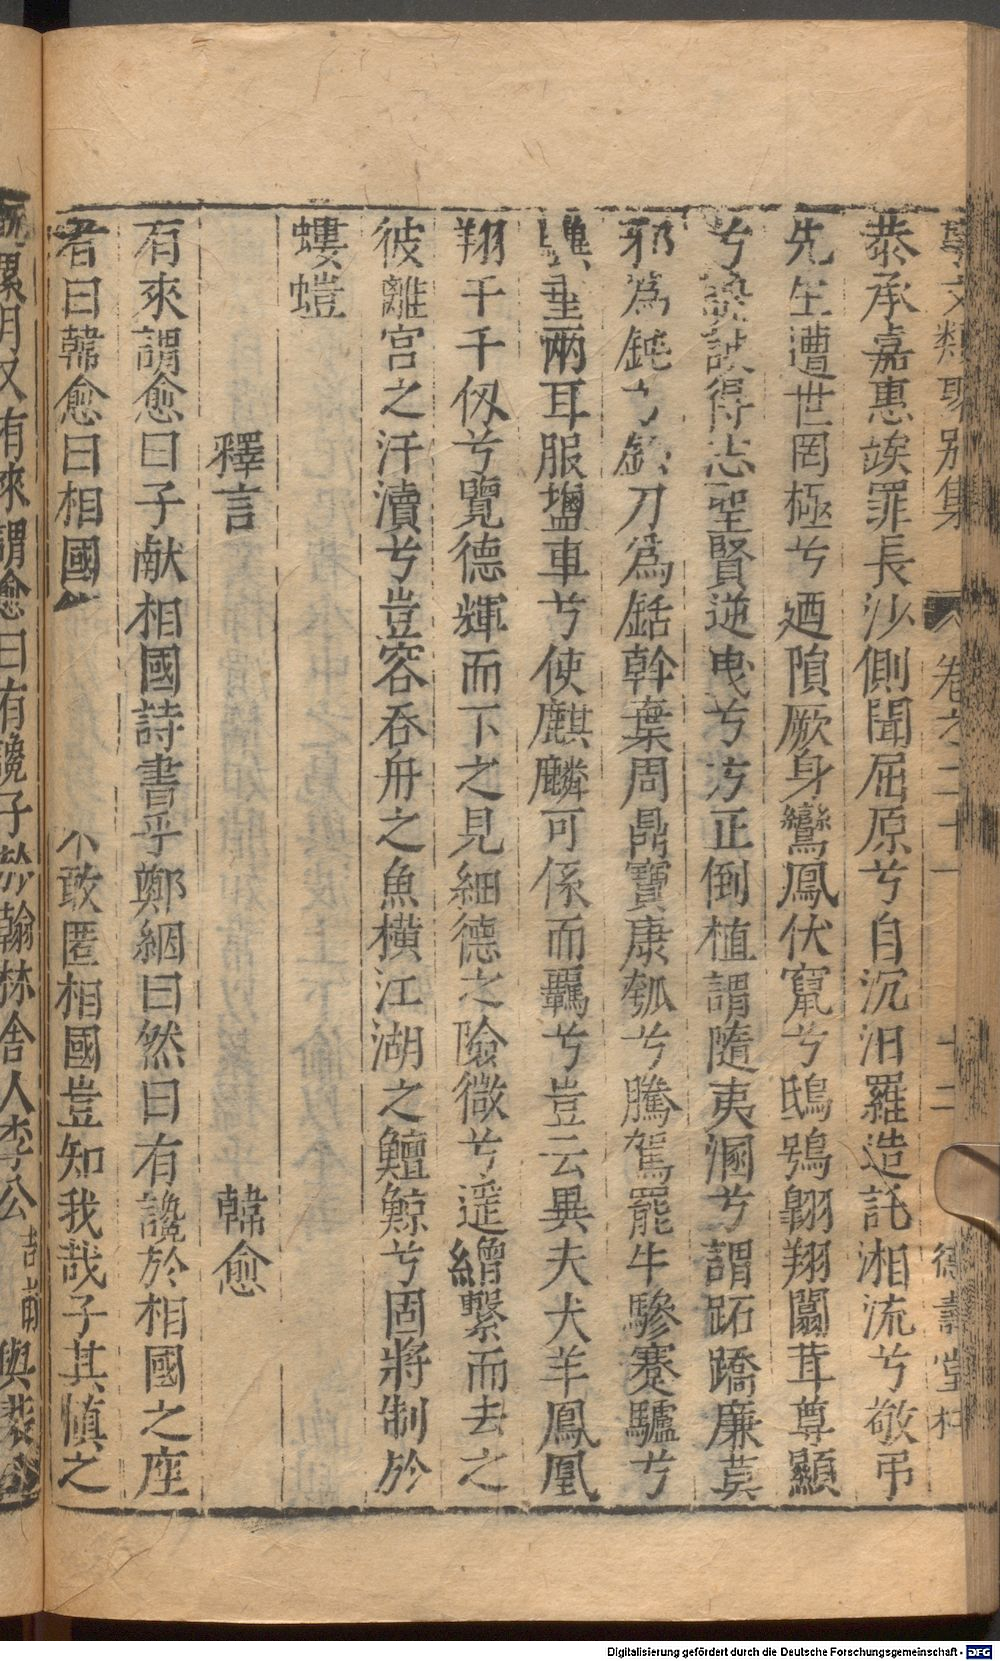 事文類聚別集 卷之二十一 十二 德壽堂梓
恭承嘉惠竢罪長沙側聞屈原兮自沉汨羅造託湘流兮敬弔
先生遭世罔極兮廼隕厥身鸞鳳伏竄兮鴟鴞翱翔闒茸尊顯
兮讒諛得志聖賢逆曳兮方正倒植謂隨夷溷兮謂跖蹻廉莫
邪為鈍兮鉛刀為銛斡棄周鼎寶康瓠兮騰駕罷牛驂蹇驢兮
驥垂兩耳服鹽車兮使麒麟可係而羈兮豈云異夫犬羊鳳凰
翔千千仞兮覽德輝而下之見細德之險微兮遥繒繫而去之
彼離宮之汗瀆兮豈容吞舟之魚橫江湖之鱣鯨兮固將制於
螻螘
釋言 韓愈
有來謂愈曰子献相國詩書乎鄭絪曰然曰有讒於相國之座
者曰韓愈曰相國 不敢匿相國豈知我哉子其慎之
累月又有來謂愈曰有讒子於翰林舍人李公吉甫與裴公
Digitalisierung gefördert durch die Deutsche Forschungsgemeinschaft - DFG